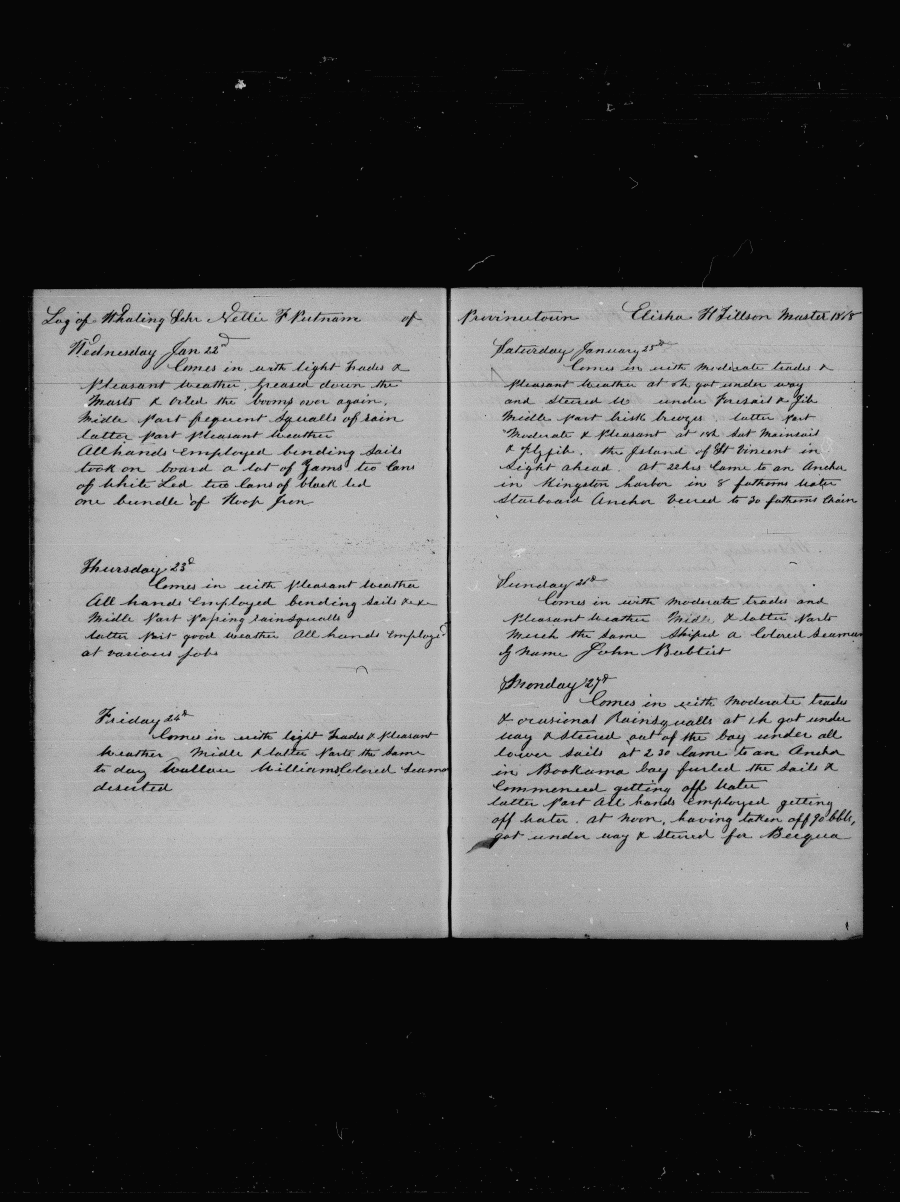 Log of Whaling Schr Nettie F Putnam of
Wednesday Jan 22d
Comes in with light Trades &
Pleasant weather, Greased down the
Masts & oiled the booms over again.
Midle Part frequent Squalls of rain
latter Part Pleasant weather
All hands Employed bending Sails
took on board a lot of Yams two Cans
of White Led two Cans of black led
one bundle of Hoop Iron
Thursday 23d
Comes in with Pleasant Weather
All hands Employed bending Sails &c
Midle Part Passing rainsqualls
latter Part good weather All hands Employed
at various jobs
Friday 24th
Comes in with light Trades & Pleasant
Weather Midle & latter Parts the Same
to day Wallace Williams Colored Seaman
deserted
Provincetown Elisha H Tillson Master
Saturday January 25th
Comes in with Moderate trades &
Pleasant Weather at 6h got under way
and Steered W under Foresail & Jib
Middle Part brisk breezes latter Part
Moderate & Pleasant at 18h Sat Mainsail
& Flyjib. the Island of St Vincent in
Sight ahead. at 22hrs Came to an Anchor
in Kingston harbor in 8 fathoms Water
Starboard Anchor Veered to 30 fathoms Chain
Sunday 26th
Comes in with moderate trades and
Pleasant Weather Midle & latter Parts
Much the Same Shiped a Colored Seaman
by name John Babtist
Monday 27th
Comes in with Moderate trades
& ocasional Rainsqualls at 1h got under
way & Steered out of the bay under all
lower Sails at 2.30 Came to an Anchor
in Bookama bay furled the Sails &
Commenced getting off Water
latter Part All hands employed getting
off Water. at Noon, having taken off 90 bbls,
got under way & Steered for Becqua